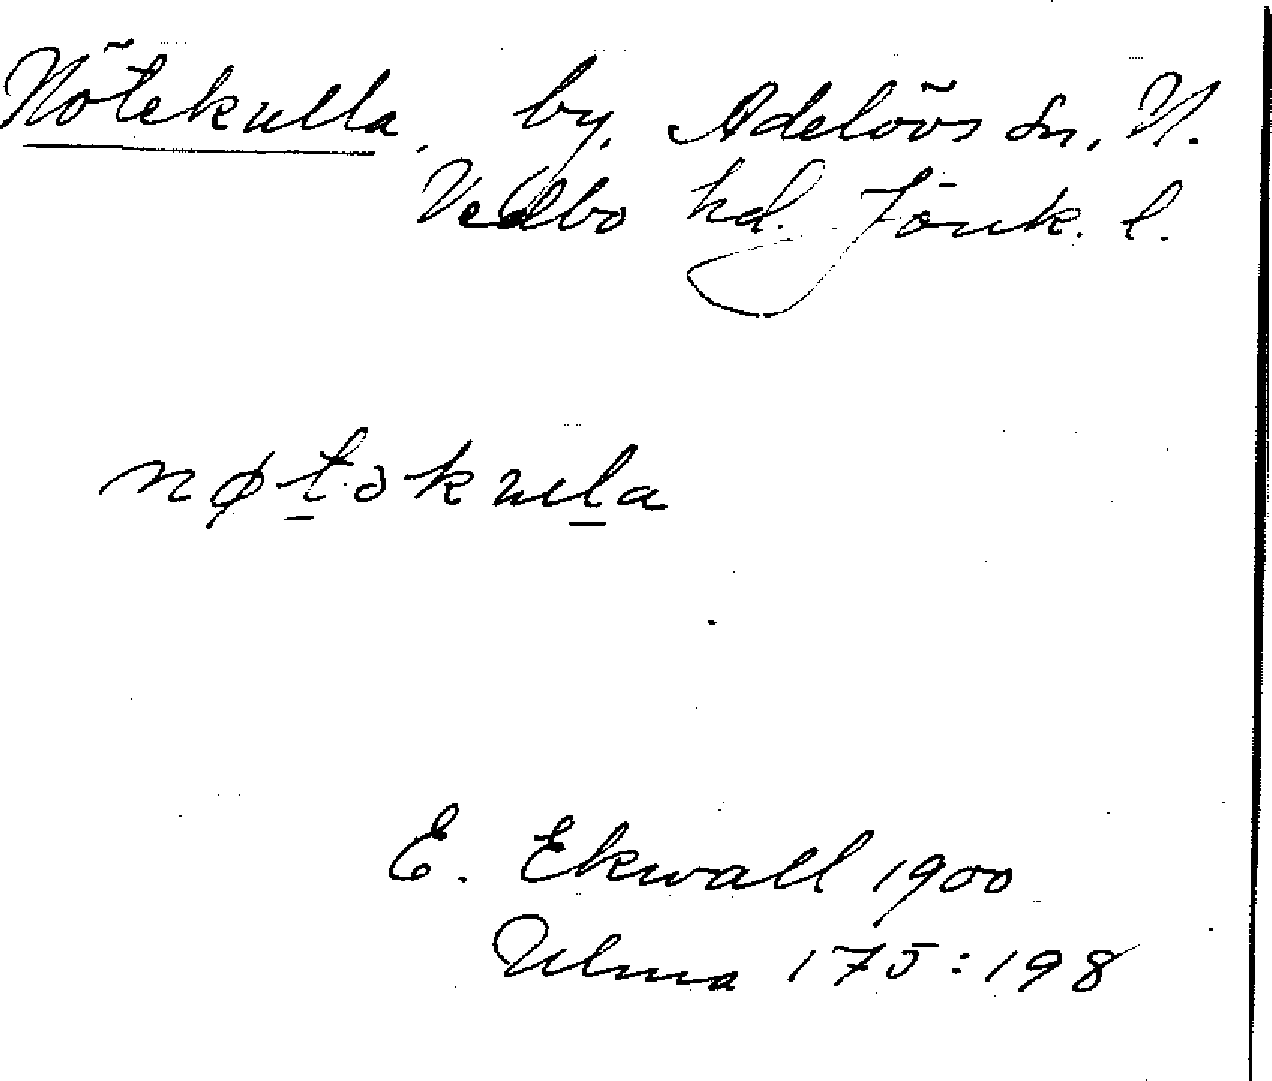 Nötekulla, by, Adelövs sn, N.
Vedbo hd. Jönk. l.
nøt̲əkul̲a
E. Ekwall 1900
Ulma 175:198